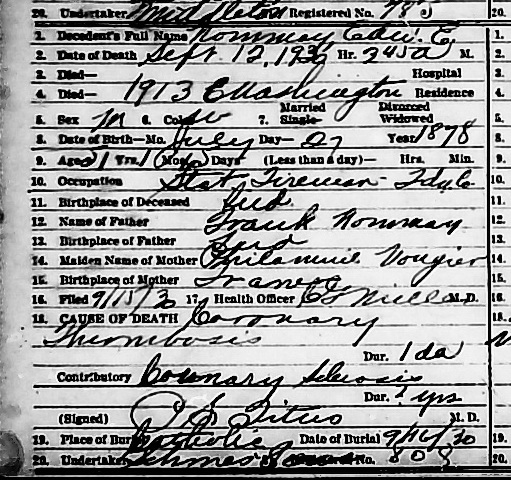 20. Undertaker Middleton Registered No. 785 20.
1. Decedent's Full Name Nommay Edw. E. 1.
2. Date of Death Sept 12, 1930 Hr. 245a M. 2.
3. Died— Hospital 3.
4. Died— 1913 E Washington Residence 4.
5. Sex M 6. Color W 7. Single Married Divorced Widowed 5.
8. Date of Birth—Mo. July Day— 27 Year 1878 8.
9. Age 51 Yrs. 1 Mos. Days (Less than a day)— Hrs. Min. 9.
10. Occupation Stat Fireman - 10.
11. Birthplace of Deceased Ind 11.
12. Name of Father Frank Nommay 12.
13. Birthplace of Father Ind 13.
14. Maiden Name of Mother Philamine Vougier 14.
15. Birthplace of Mother France 15.
16. Filed 9/15/30 17. Health Officer Miller M.D. 16.
18. CAUSE OF DEATH Coronary 18.
Thrombosis
Dur. 1 da
Contributory Coronary Sclerosis
Dur. ? yrs
(Signed) Titus M. D.
19. Place of Burial Catholic Date of Burial 9/16/30 19.
20. Undertaker No. 808 20.